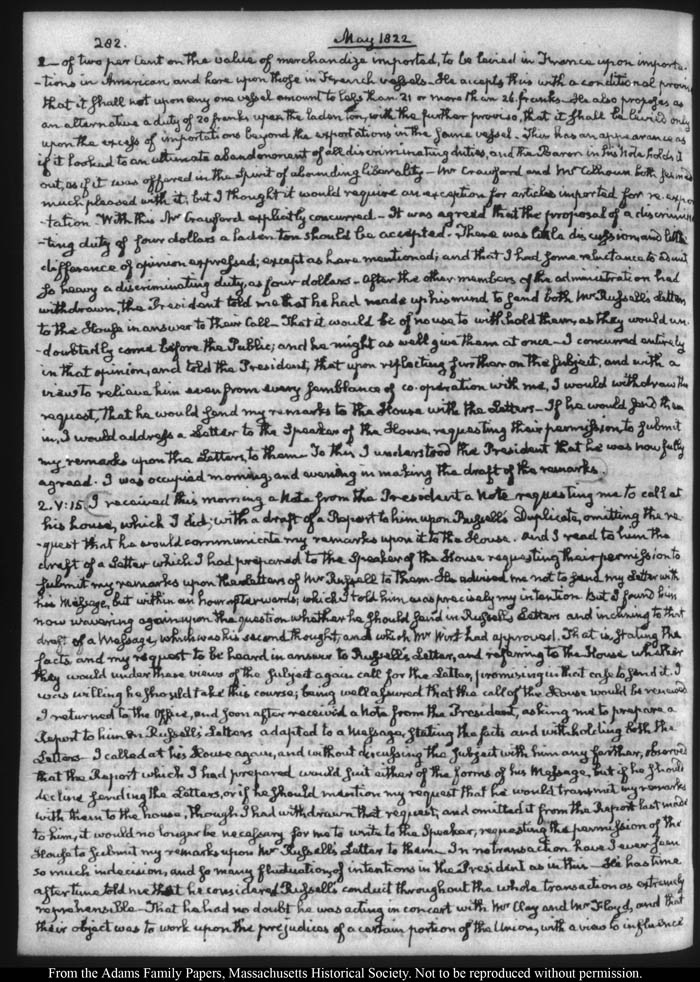 282.
May 1822
of two per Cent on the value of merchandize imported, to be levied in France upon importa-
-tions in American, and here upon those in French vessels. He accepts this with a conditional proviso
that it shall not upon any one vessel amount to less than 21 or more than 26 franks. He also proposes as
an alternative a duty of 20 franks upon the laden ton, with the further proviso, that it shall be levied only
upon the excess of importations beyond the exportations in the same vessel. This has an appearance as
if it looked to an ultimate abandonment of all discriminating duties, and the Baron in his Note holds it
out, as if it was offered in the Spirit of abounding liberality. Mr Crawford and Mr Calhoun both seemed
much pleased with it, but I thought it would require an exception for articles imported for re-expor-
-tation. With this Mr Crawford explicitly concurred. It was agreed that the proposal of a discrimina-
-ting duty of four dollars a laden ton should be accepted. There was little discussion, and little
difference of opinion expressed; except as here mentioned; and that I had some reluctance to admit
so heavy a discriminating duty, as four dollars. After the other members of the administration had
withdrawn, the President told me that he had made up his mind to send both Mr Russell's Letters
to the House in answer to their Call. That it would be of no use to withhold them, as they would un-
-doubtedly come before the Public; and he might as well give them at once. I concurred entirely
in that opinion, and told the President, that upon reflecting further on the subject, and with a
view to relieve him even from every semblance of co-operation with me, I would withdraw the
request, that he would send my remarks to the House with the Letters. If he would send them
in, I would address a Letter to the Speaker of the House requesting their permission to submit
my remarks upon the Letters to them. To this I understood the President that he was now fully
agreed. I was occupied morning and evening in making the draft of the remarks.
2. V:15. I received this morning a Note from the President a Note requesting me to call at
his house, which I did; with a draft of a Report to him upon Russell's Duplicate, omitting the re-
-quest that he would communicate my remarks upon it to the House. And I read to him the
draft of a Letter which I had prepared to the Speaker of the House requesting their permission to
submit my remarks upon the Letters of Mr Russell to them. He advised me not to send my Letter with
his Message, but within an hour afterwards; which I told him was precisely my intention. But I found him
now wavering again upon the question whether he should send in Russell's Letters and inclining to that
draft of a Message, which was his second thought, and which Mr Wirt had approved. That is, stating the
facts and my request to be heard in answer to Russell's Letter, and referring to the House whether
they would under these views of the subject again call for the Letter, promising in that case to send it. I
was willing he should take this course; being well assured that the call of the House would be renewed
I returned to the Office, and soon after received a Note from the President, asking me to prepare a
Report to him on Russell's Letters adapted to a Message, stating the facts and withholding both the
Letters. I called at his House again, and without discussing the subject with him any farther, observed
that the Report which I had prepared would suit either of the forms of his Message, but if he should
decline sending the Letters, or if he should mention my request that he would transmit my remarks
with them to the house, though I had withdrawn that request, and omitted it from the Report last made
to him, it would no longer be necessary for me to write to the Speaker, requesting the permission of the
House to submit my remarks upon Mr Russell's Letter to them. In no transaction have I ever seen
so much indecision, and so many fluctuations of intentions in the President as in this. He has time
after time told me that he considered Russell's conduct throughout the whole transaction as extremely
reprehensible. That he had no doubt he was acting in concert with Mr Clay and Mr Floyd, and that
their object was to work upon the prejudices of a certain portion of the Union, with a view to influence
From the Adams Family Papers, Massachusetts Historical Society. Not to be reproduced without permission.